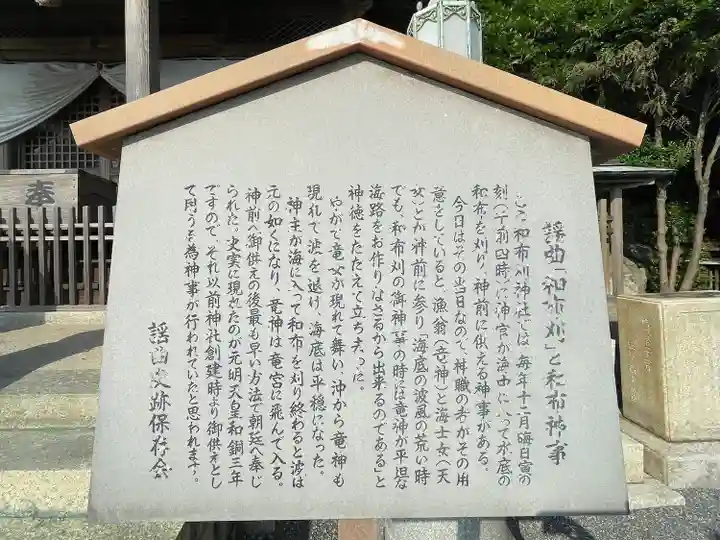 謡曲「和布刈」と和布神事
この和布刈神社では、毎年十二月晦日寅の
刻(午前四時)に神官が海中に入って水底の
和布を刈り、神前に供える神事がある。
今日はその当日なので、神職の者がその用
意をしていると、漁翁(竜神)と海士女(天
女)とが神前に参り「海底の波風の荒い時
でも、和布刈の御神事の時には竜神が平坦な
海路をお作りなさるから出来るのである」と
神徳をたたえて立ち去った。
やがて竜女が現れて舞い、沖から竜神も
現れて波を退け、海底は平穏になった。
神主が海に入って和布を刈り終わると波は
元の如くになり、竜神は竜宮に飛んで入る。
神前へ御供えの後最も早い方法で朝廷へ奉じ
られた。史実に現れたのが元明天皇和銅三年
ですので、それ以前神社創建時より御供えとし
て用うる為神事が行われていたと思われます。
謡曲史跡保存会
奉